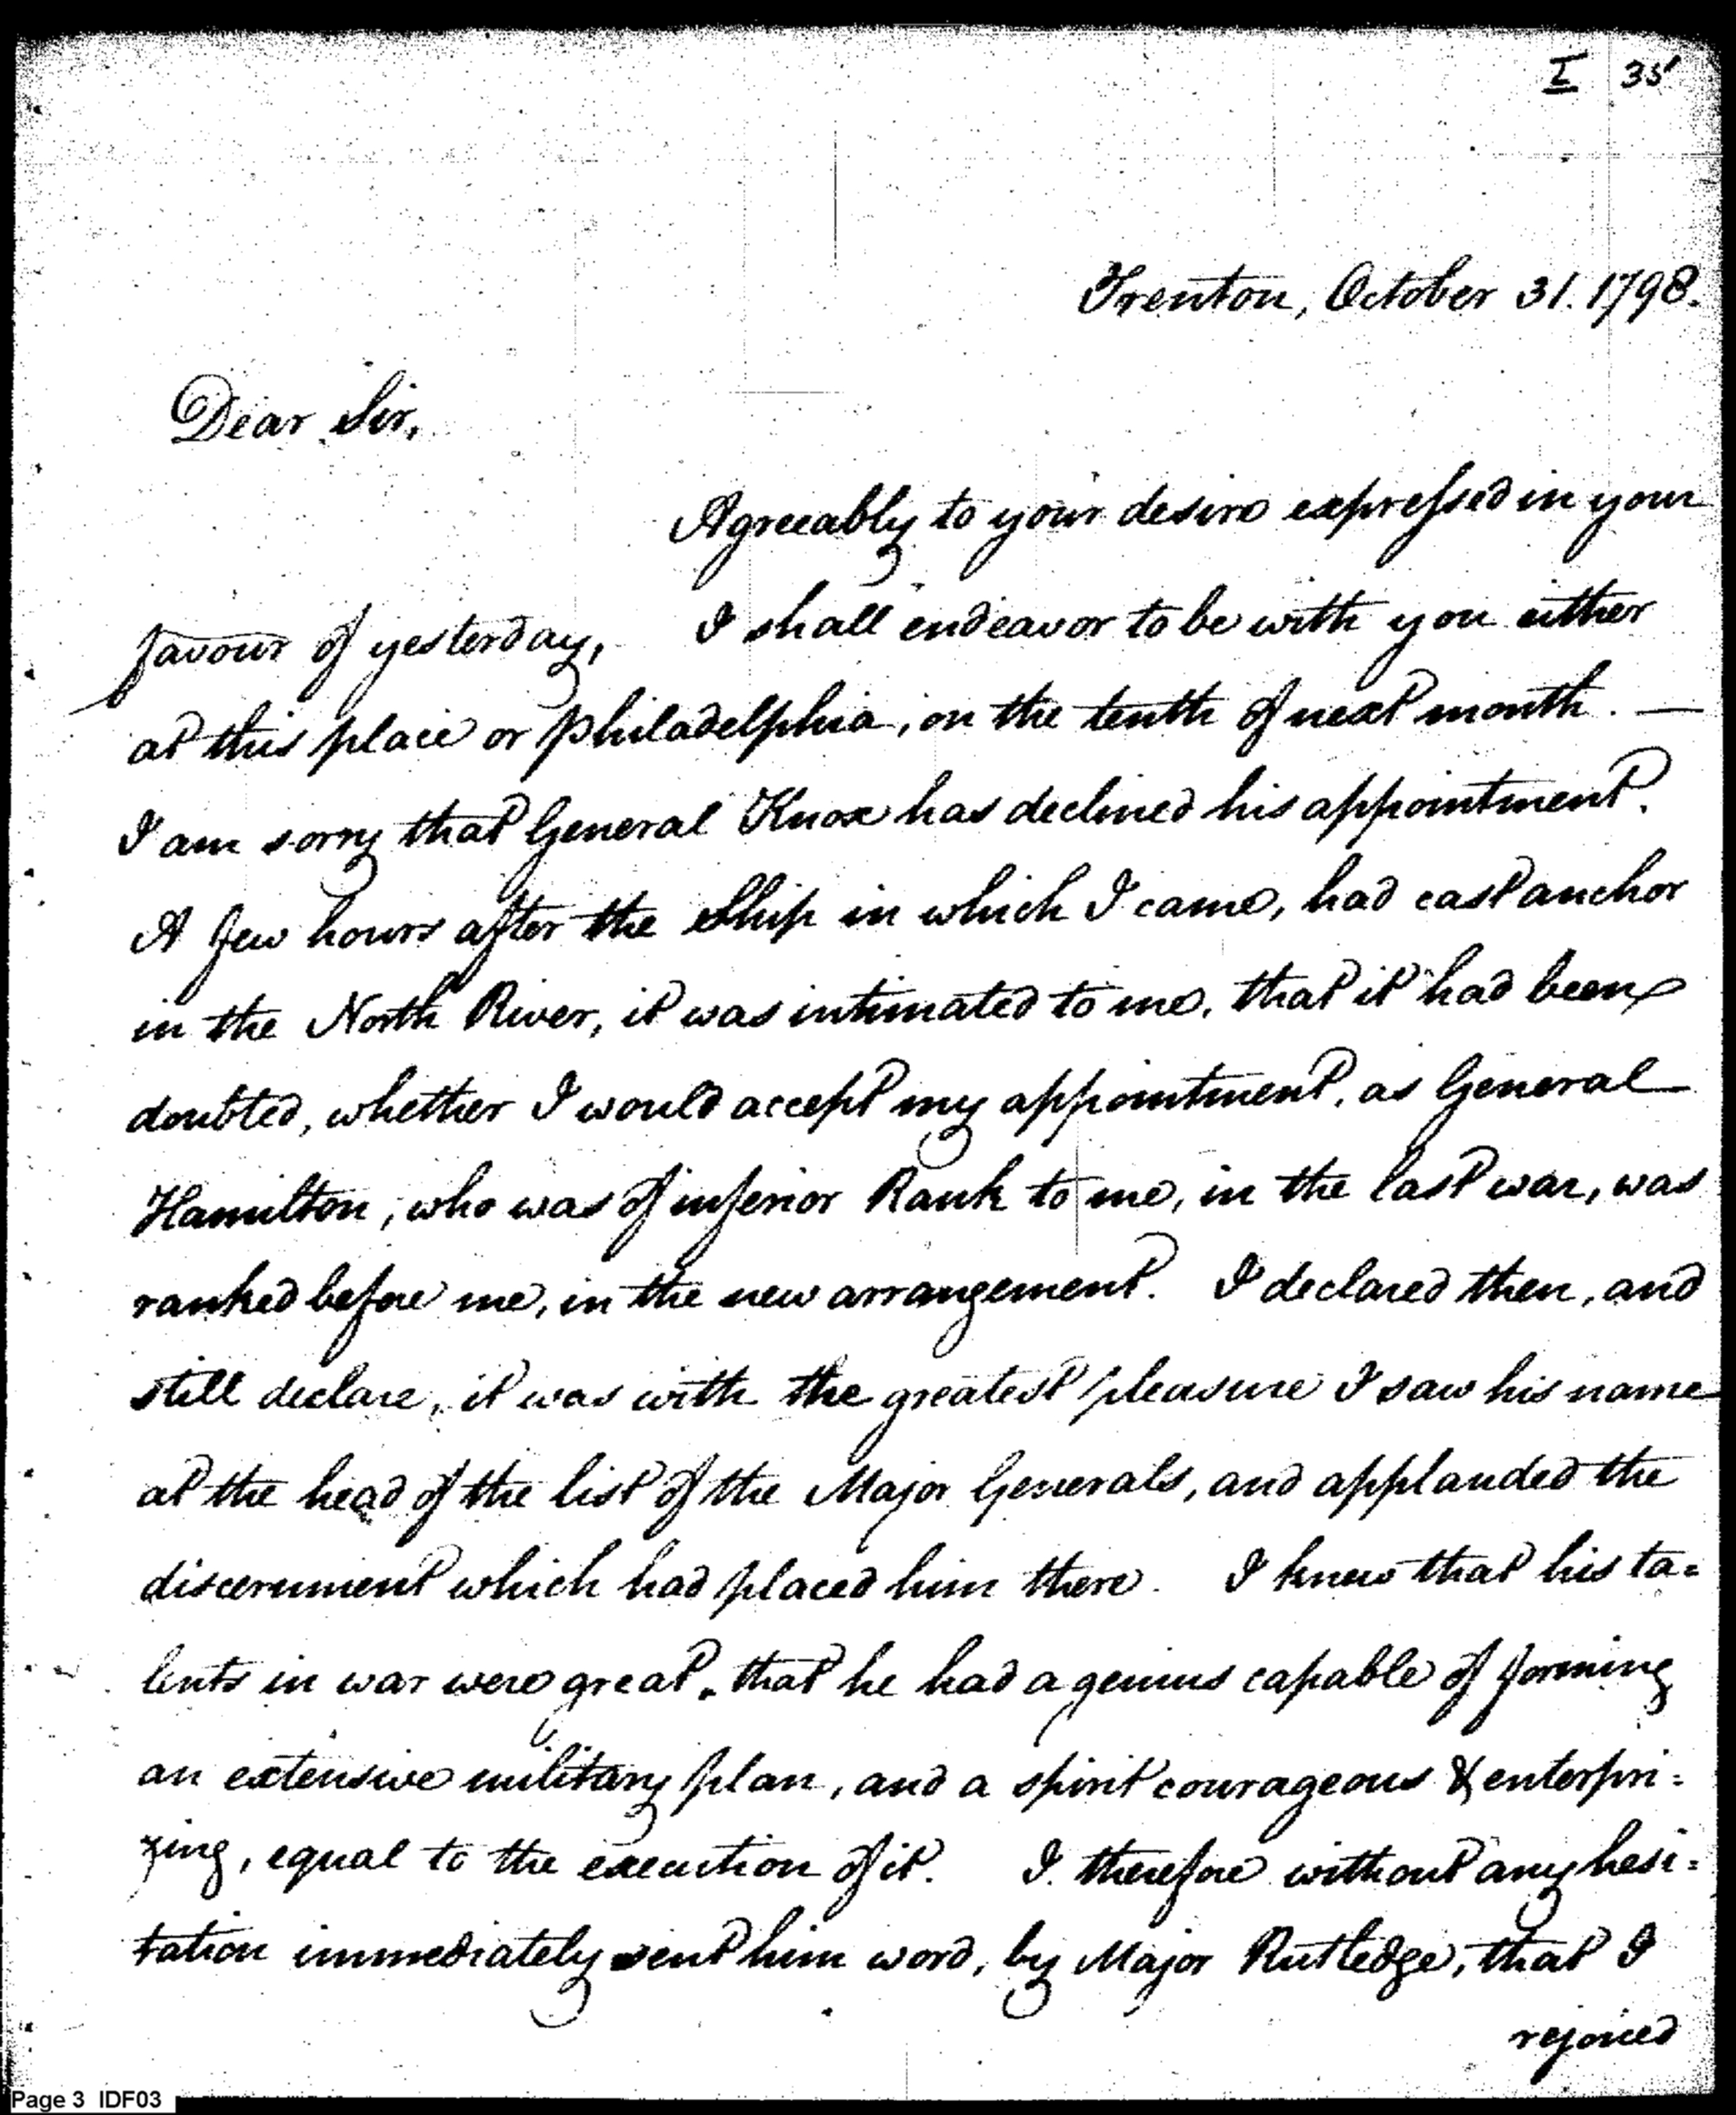 I 35
Trenton, October 31. 1798.
Dear Sir,
Agreeably to your desire expressed in your
favour of yesterday, I shall endeavor to be with you either
at this place or Philadelphia, on the tenth of next month. —
I am sorry that General Knox has declined his appointment.
A few hours after the Ship in which I came, had cast anchor
in the North River, it was intimated to me, that it had been
doubted, whether I would accept my appointment, as General
Hamilton, who was of inferior Rank to me, in the last war, was
ranked before me, in the new arrangement. I declared then, and
still declare, it was with the greatest pleasure I saw his name
at the head of the list of the Major Generals, and applauded the
discernment which had placed him there. I knew that his ta=
lents in war were great, that he had a genius capable of forming
an extensive military plan, and a spirit courageous & enterpri=
zing, equal to the execution of it. I therefore without any hesi=
tation immediately sent him word, by Major Rutledge, that I
rejoiced
Page 3 IDF03